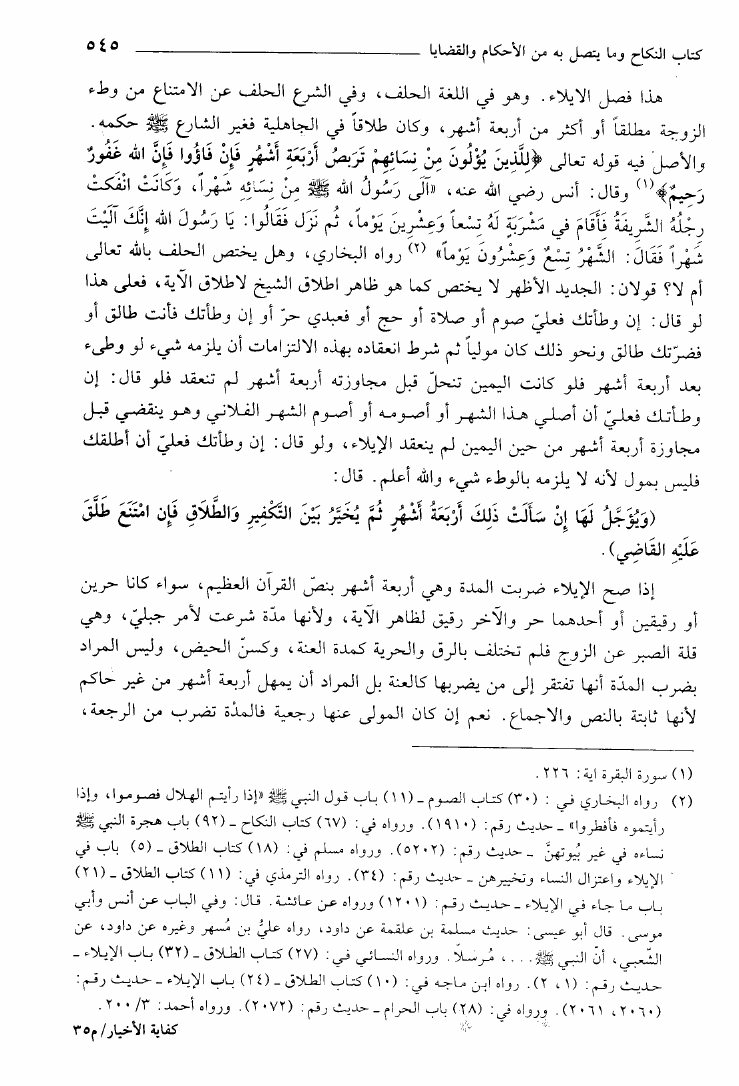 كتاب النكاح وما يتصل به من الأحكام والقضايا ٥٤٥
هذا فصل الايلاء. وهو في اللغة الحلف، وفي الشرع الحلف عن الامتناع من وطء
الزوجة مطلقاً أو أكثر من أربعة أشهر، وكان طلاقاً في الجاهلية فغير الشارع ﷺ حكمه.
والأصل فيه قوله تعالى ﴿لِلَّذِينَ يُؤْلُونَ مِنْ نِسَائِهِمْ تَرَبُصُ أَرْبَعَةِ أَشْهُرٍ فَإِنْ فَاؤُوا فَإِنَّ الله غَفُورٌ
رَحِيمٌ﴾(١) وقال: أنس رضي الله عنه، «آلَى رَسُولُ الله ﷺ مِنْ نِسَائِهِ شَهْراً، وَكَانَتْ انْفَكتْ
رِجْلُهُ الشَّرِيفَةُ فَأَقَامَ في مَشْرَبَةٍ لَهُ تِسْعاً وَعِشْرِينَ يَوْماً، ثُم نَزَل فَقَالُوا: يَا رَسُولَ الله إِنَّكَ آلَيْتَ
شَهْراً فَقَالَ: الشَّهْرُ تِسْعٌ وَعِشْرُونَ يَوْماً» (٢) رواه البخاري، وهل يختص الحلف بالله تعالى
أم لا؟ قولان: الجديد الأظهر لا يختص كما هو ظاهر اطلاق الشيخ لاطلاق الآية، فعلى هذا
لو قال: إن وطأتك فعليّ صوم أو صلاة أو حج أو فعبدي حرّ أو إن وطأتك فأنت طالق أو
فضرّتك طالق ونحو ذلك كان مولياً ثم شرط انعقاده بهذه الالتزامات أن يلزمه شيء لو وطىء
بعد أربعة أشهر فلو كانت اليمين تنحلّ قبل مجاوزته أربعة أشهر لم تنعقد فلو قال: إن
وطأتك فعليّ أن أصلي هذا الشهر أو أصومه أو أصوم الشهر الفلاني وهو ينقضي قبل
مجاوزة أربعة أشهر من حين اليمين لم ينعقد الإيلاء، ولو قال: إن وطأتك فعليّ أن أطلقك
فليس بمول لأنه لا يلزمه بالوطء شيء والله أعلم. قال:
(وَيُؤَجَّلُ لَهَا إِنْ سَأَلَتْ ذَلِكَ أَرْبَعَةُ أَشْهُرٍ ثُمَّ يُخَيَّرُ بَيْنَ التَّكْفِيرِ وَالطَّلَاقِ فَإِن امْتَنَعَ طَلَّقَ
عَلَيْهِ القَاضِي).
إذا صح الإيلاء ضربت المدة وهي أربعة أشهر بنصّ القرآن العظيم، سواء كانا حرين
أو رقيقين أو أحدهما حر والآخر رقيق لظاهر الآية، ولأنها مدّة شرعت لأمر جبليّ، وهي
قلة الصبر عن الزوج فلم تختلف بالرق والحرية كمدة العنة، وكسنّ الحيض، وليس المراد
بضرب المدّة أنها تفتقر إلى من يضربها كالعنة بل المراد أن يمهل أربعة أشهر من غير حاكم
لأنها ثابتة بالنص والاجماع. نعم إن كان المولى عنها رجعية فالمدّة تضرب من الرجعة،
(١) سورة البقرة اية: ٢٢٦.
(٢) رواه البخاري في : (٣٠) كتاب الصوم ـ (١١) باب قول النبي ﷺ «إذا رأيتم الهلال فصوموا، وإذا
رأيتموه فأفطروا» ـ حديث رقم: (١٩١٠). ورواه في: (٦٧) كتاب النكاح ـ (٩٢) باب هجرة النبي ﷺ
نساءه في غير بُيوتهنَّ ـ حديث رقم: (٥٢٠٢). ورواه مسلم في: (١٨) كتاب الطلاق ـ (٥) باب في
الإيلاء واعتزال النساء وتخييرهن ـ حديث رقم: (٣٤). رواه الترمذي في: (١١) كتاب الطلاق ـ (٢١)
باب ما جاء في الإيلاء ـ حديث رقم: (١٢٠١) ورواه عن عائشة. قال: وفي الباب عن أنس وأبي
موسى. قال أبو عيسى: حديث مسلمة بن علقمة عن داود، رواه عليُّ بن مُسهر وغيره عن داود، عن
الشَّعبي، أنّ النبي ﷺ...، مُرسَلاً. ورواه النسائي في: (٢٧) كتاب الطلاق ـ (٣٢) باب الإيلاء ـ
حديث رقم: (١، ٢). رواه ابن ماجه في: (١٠) كتاب الطلاق ـ (٢٤) باب الإيلاء ـ حديث رقم:
(٢٠٦٠، ٢٠٦١). ورواه في: (٢٨) باب الحرام ـ حديث رقم: (٢٠٧٢). ورواه أحمد: ٣/ ٢٠٠.
كفاية الأخيار/ م٣٥